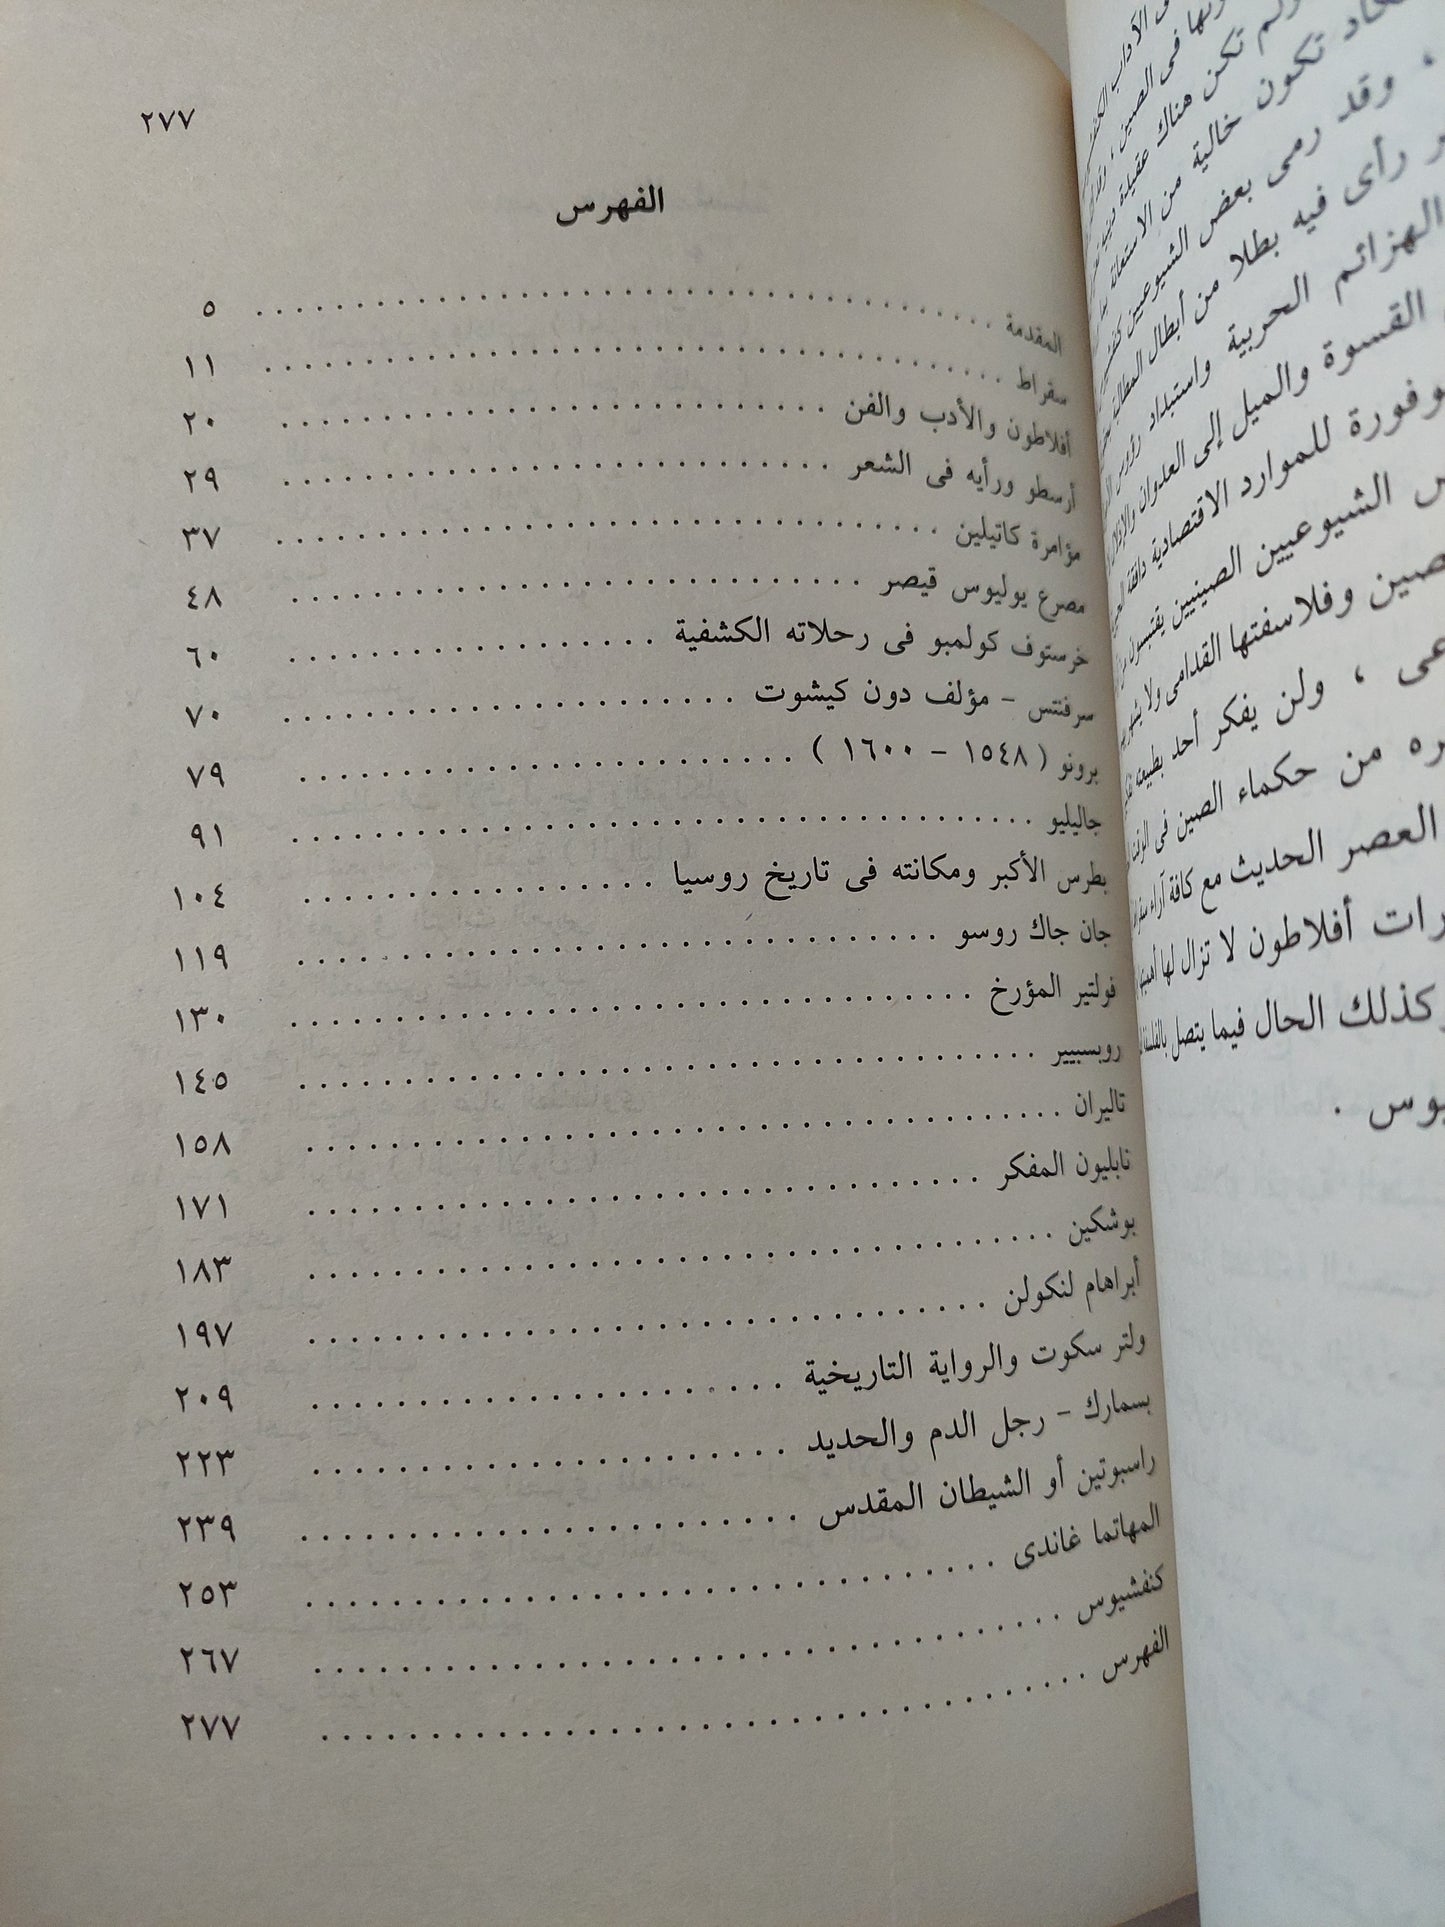 ٢٧٧
الفهرس
المقدمة . . . . . . . . . . ٥
سقراط . . . . . . . . . . ١١
أفلاطون والأدب والفن . . . . . . . . . . ٢٠
أرسطو ورأيه فى الشعر . . . . . . . . . . ٢٩
مؤامرة كاتيلين . . . . . . . . . . ٣٧
مصرع يوليوس قيصر . . . . . . . . . . ٤٨
خرستوف كولمبو فى رحلاته الكشفية . . . . . . . . . . ٦٠
سرفنتس – مؤلف دون كيشوت . . . . . . . . . . ٧٠
برونو ( ١٥٤٨ – ١٦٠٠ ) . . . . . . . . . . ٧٩
جاليليو . . . . . . . . . . ٩١
بطرس الأكبر ومكانته فى تاريخ روسيا . . . . . . . . . . ١٠٤
جان جاك روسو . . . . . . . . . . ١١٩
فولتير المؤرخ . . . . . . . . . . ١٣٠
روبسبيير . . . . . . . . . . ١٤٥
تاليران . . . . . . . . . . ١٥٨
نابليون المفكر . . . . . . . . . . ١٧١
بوشكين . . . . . . . . . . ١٨٣
أبراهام لنكولن . . . . . . . . . . ١٩٧
ولتر سكوت والرواية التاريخية . . . . . . . . . . ٢٠٩
بسمارك – رجل الدم والحديد . . . . . . . . . . ٢٢٣
راسبوتين أو الشيطان المقدس . . . . . . . . . . ٢٣٩
المهاتما غاندى . . . . . . . . . . ٢٥٣
كنفشيوس . . . . . . . . . . ٢٦٧
الفهرس . . . . . . . . . . ٢٧٧
فى الصين ،
ولم تكن هناك عقيدة
تكون خالية من الاستعانة
، وقد رمى بعض الشيوعيين
رأى فيه بطلا من أبطال
الهزائم الحربية واستبداد
القسوة والميل إلى العدوان
للموارد الاقتصادية
الشيوعيين الصينيين يقتبسون
وفلاسفتها القدامى ولا
، ولن يفكر أحد بطبيعة
من حكماء الصين فى
العصر الحديث مع كافة آراء
أفلاطون لا تزال لها
وكذلك الحال فيما يتصل